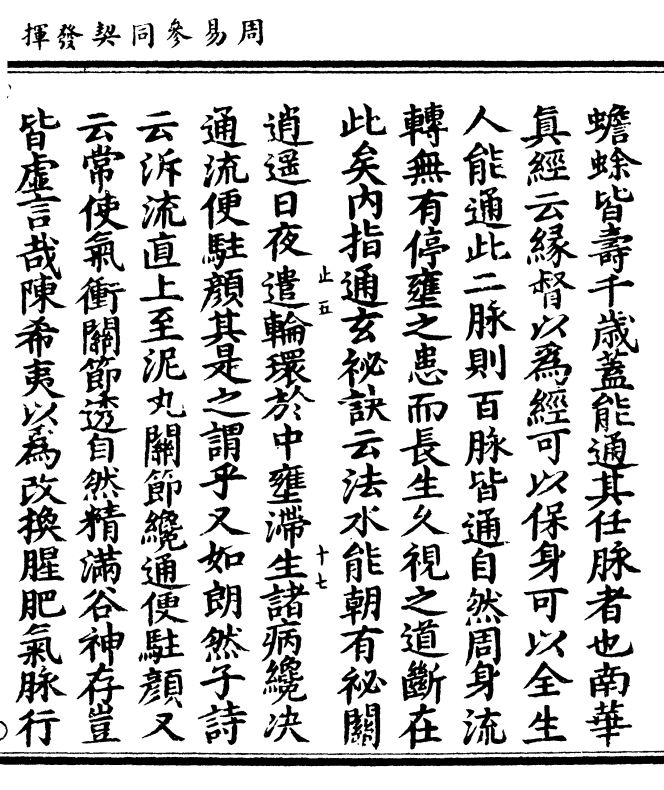 周易參同契發揮
蟾蜍皆壽千歲蓋能通其任脉者也南華
眞經云緣督以爲經可以保身可以全生
人能通此二脉則百脉皆通自然周身流
轉無有停壅之患而長生久視之道斷在
此矣内指通玄祕訣云法水能朝有祕關
止五
十七
逍遥日夜遣輪環於中壅滯生諸病纔决
通流便駐顔其是之謂乎又如朗然子詩
云泝流直上至泥丸關節纔通便駐顔又
云常使氣衝關節透自然精滿谷神存豈
皆虚言哉陳希夷以爲改換腥肥氣脉行